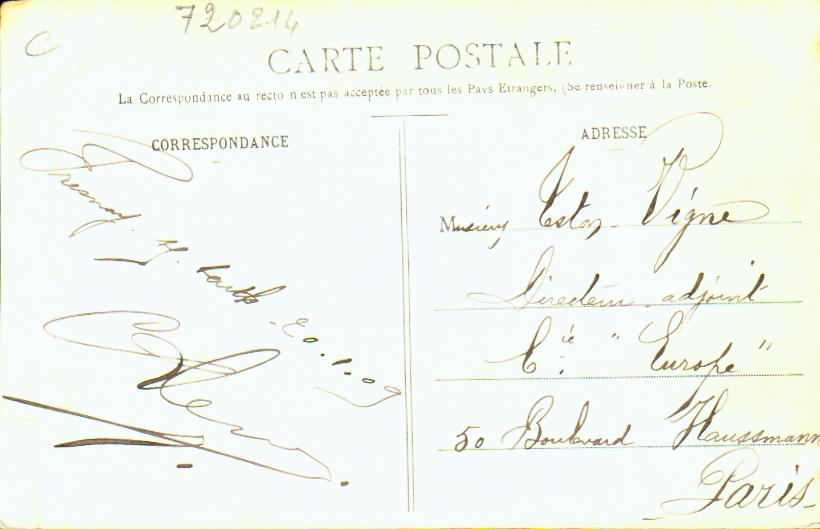 720814
C
CARTE POSTALE
La Correspondance au recto n'est pas acceptée par tous les Pays Etrangers. (Se renseigner à la Poste.
CORRESPONDANCE
Fresnay
20.1.09
ADRESSE
Monsieur Vigne
Directeur adjoint
Cie "Europe"
50 Boulevard Haussmann
Paris